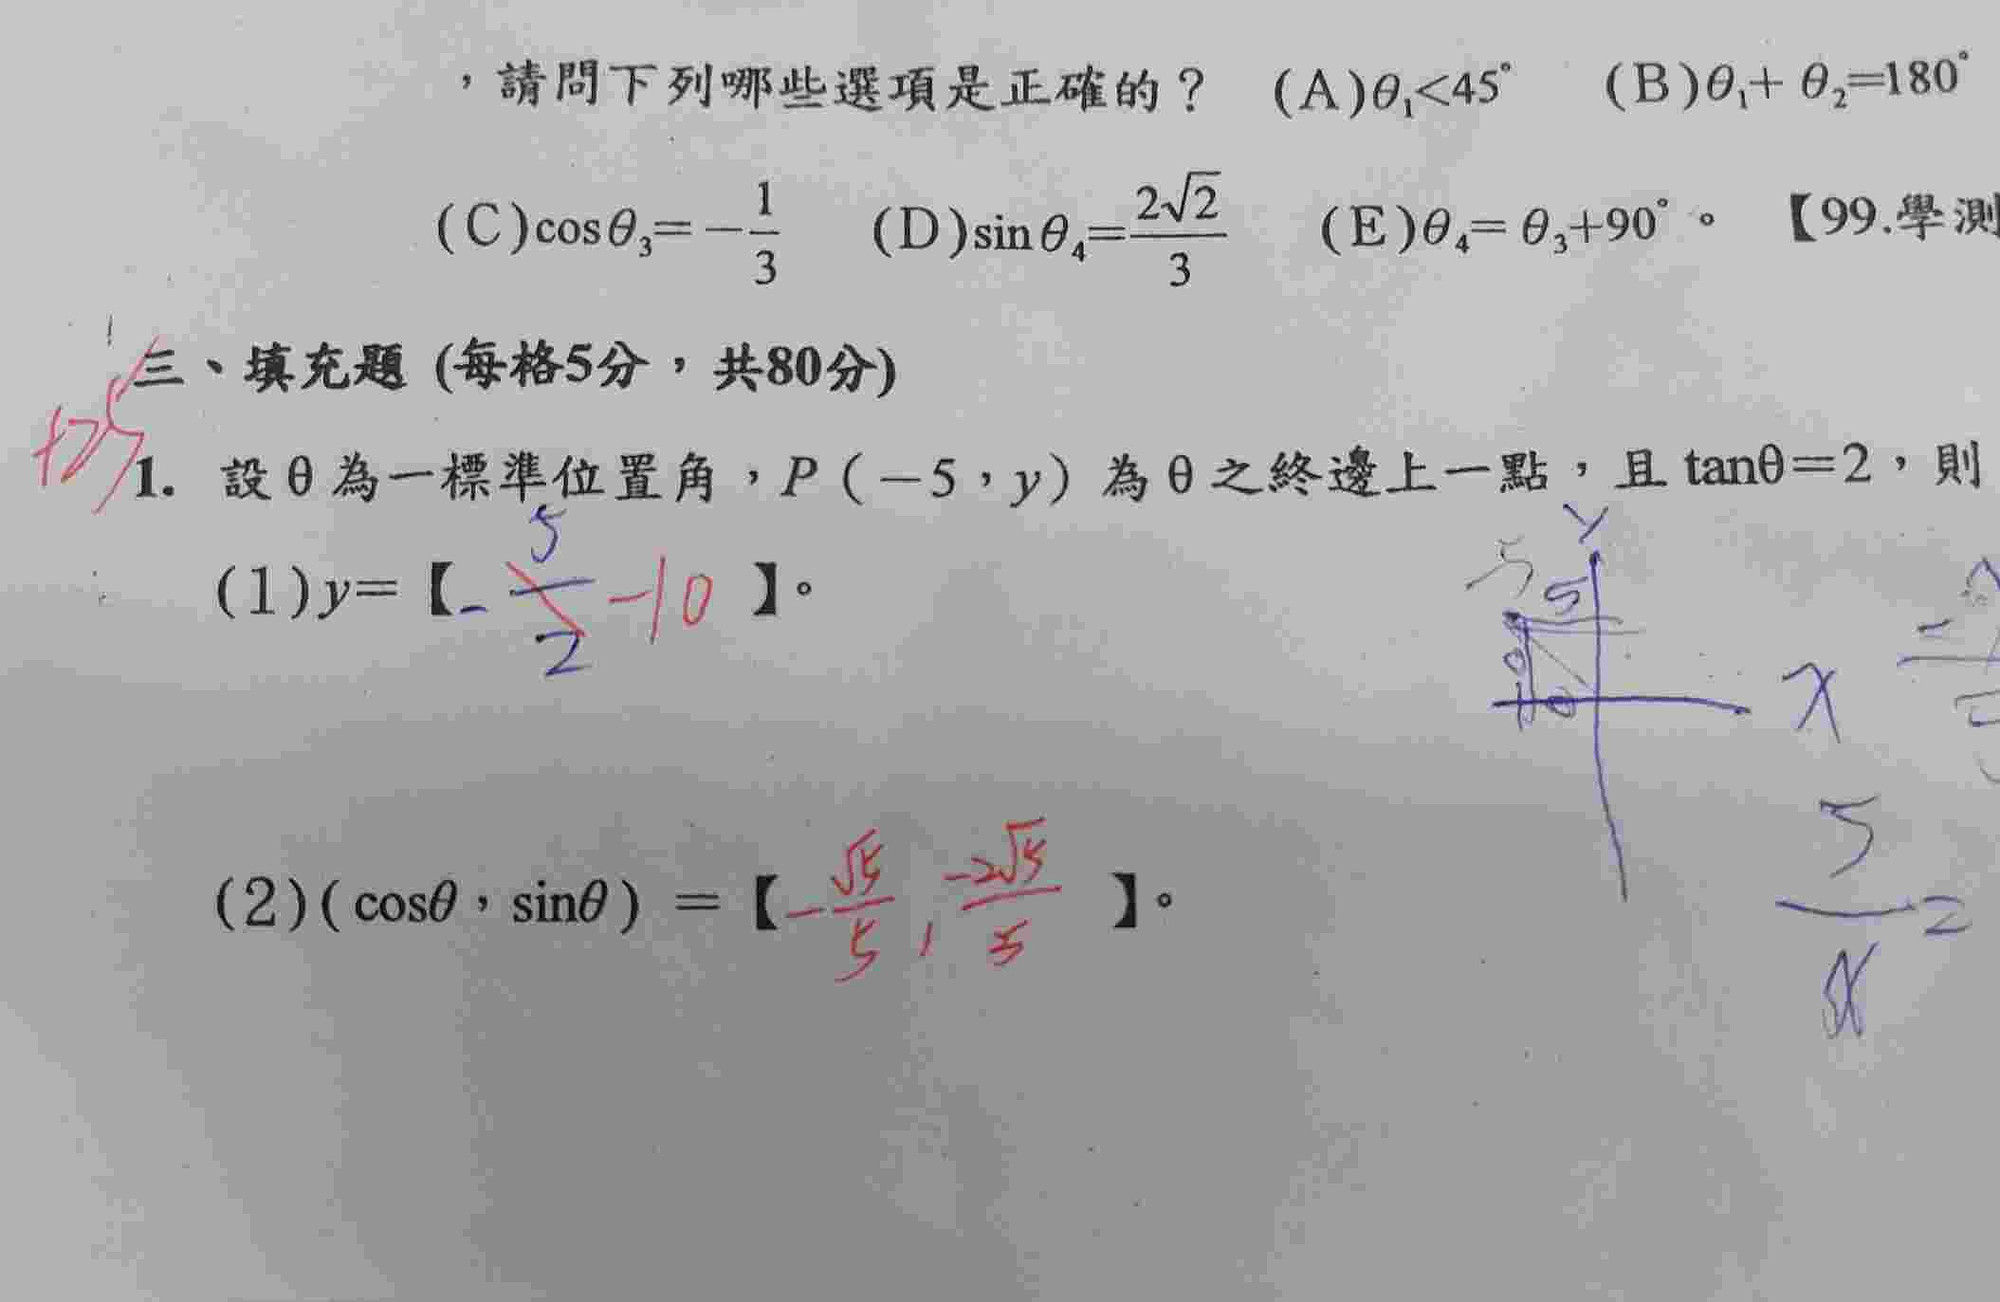 ，請問下列哪些選項是正確的？ (A)θ₁<45° (B)θ₁+θ₂=180°
(C)cosθ₃=-1/3 (D)sinθ₄=2√2/3 (E)θ₄=θ₃+90°。 【99.學測
三、填充題 (每格5分，共80分)
1. 設θ為一標準位置角，P(-5，y)為θ之終邊上一點，且tanθ=2，則
(1)y=【-5/2 -10】。
(2)(cosθ，sinθ)=【-√5/5, -2√5/5】。
Y
5
x
5/x=2